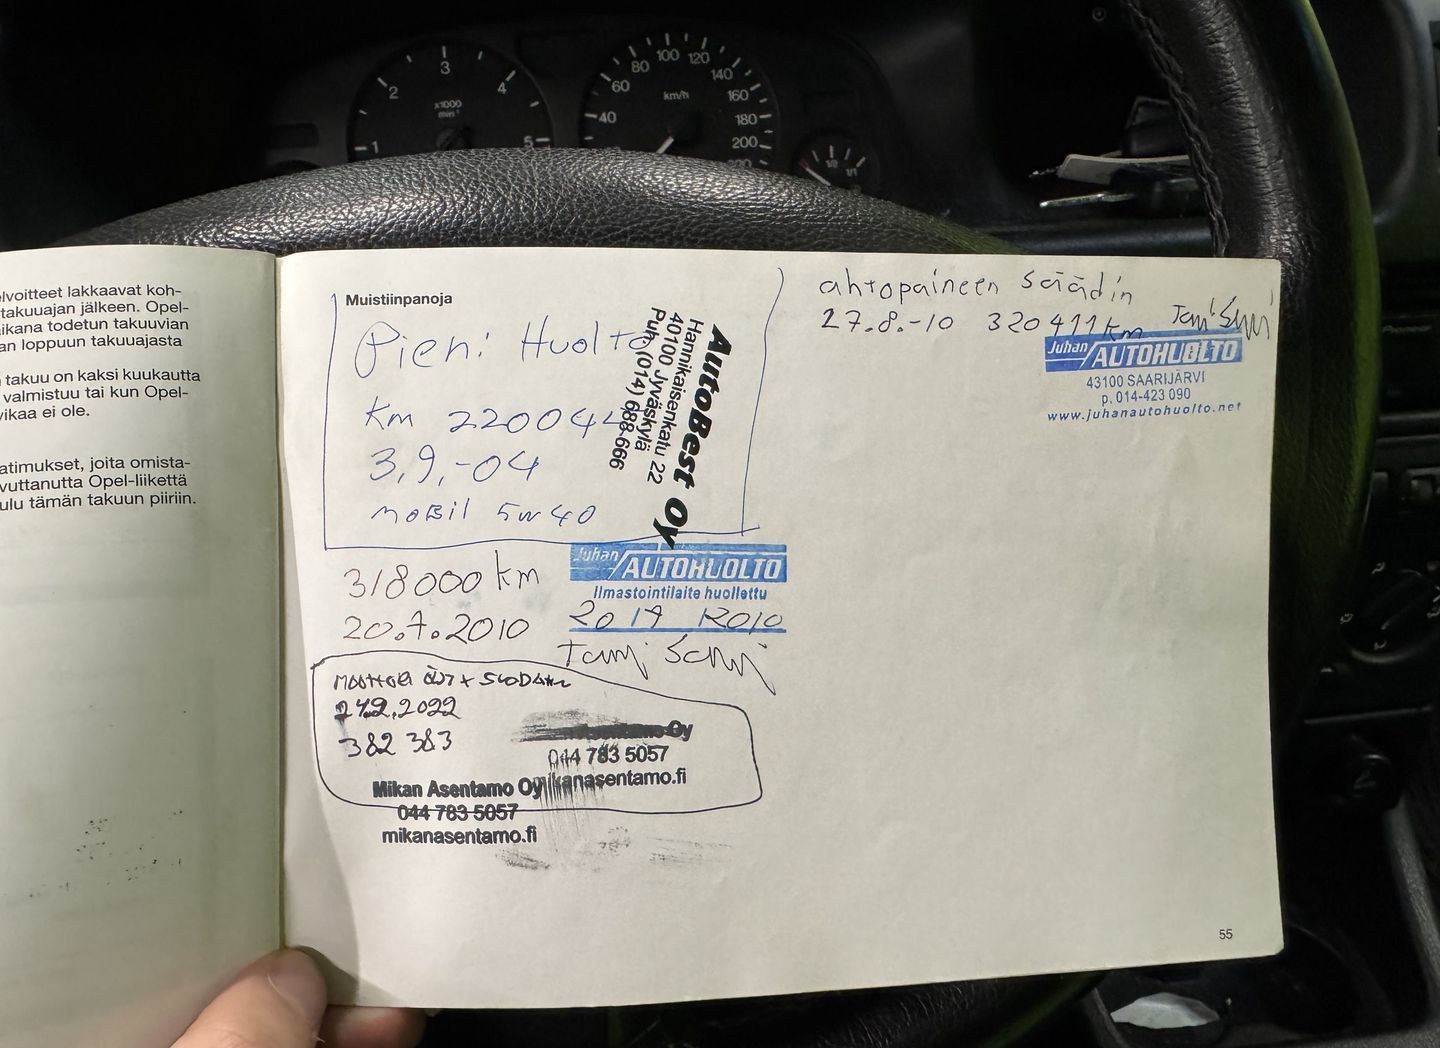 1
2
3
4
5
x1000
min⁻¹
40
60
80
100
120
140
160
180
200
220
km/h
1/2
1/1
Pioneer
elvoitteet lakkaavat koh-
takuuajan jälkeen. Opel-
aikana todetun takuuvian
an loppuun takuuajasta
takuu on kaksi kuukautta
valmistuu tai kun Opel-
vikaa ei ole.
atimukset, joita omista-
vuttanutta Opel-liikettä
ulu tämän takuun piiriin.
Muistiinpanoja
Pieni Huolto
Km 220044
3.9.-04
Mobil 5w40
AutoBest Oy
Hannikaisenkatu 22
40100 Jyväskylä
Puh. (014) 688-666
318000 km
20.7.2010
Juhan
AUTOHUOLTO
Ilmastointilaite huollettu
20 / 7 2010
Tami
Moottori öljy +
2022
382 383
Asentamo Oy
044 783 5057
mikanasentamo.fi
Mikan Asentamo Oy
044 783 5057
mikanasentamo.fi
ahtopaineen säädin
27.8.-10 320411 km
Juhan
AUTOHUOLTO
43100 SAARIJÄRVI
p. 014-423 090
www.juhanautohuolto.net
55